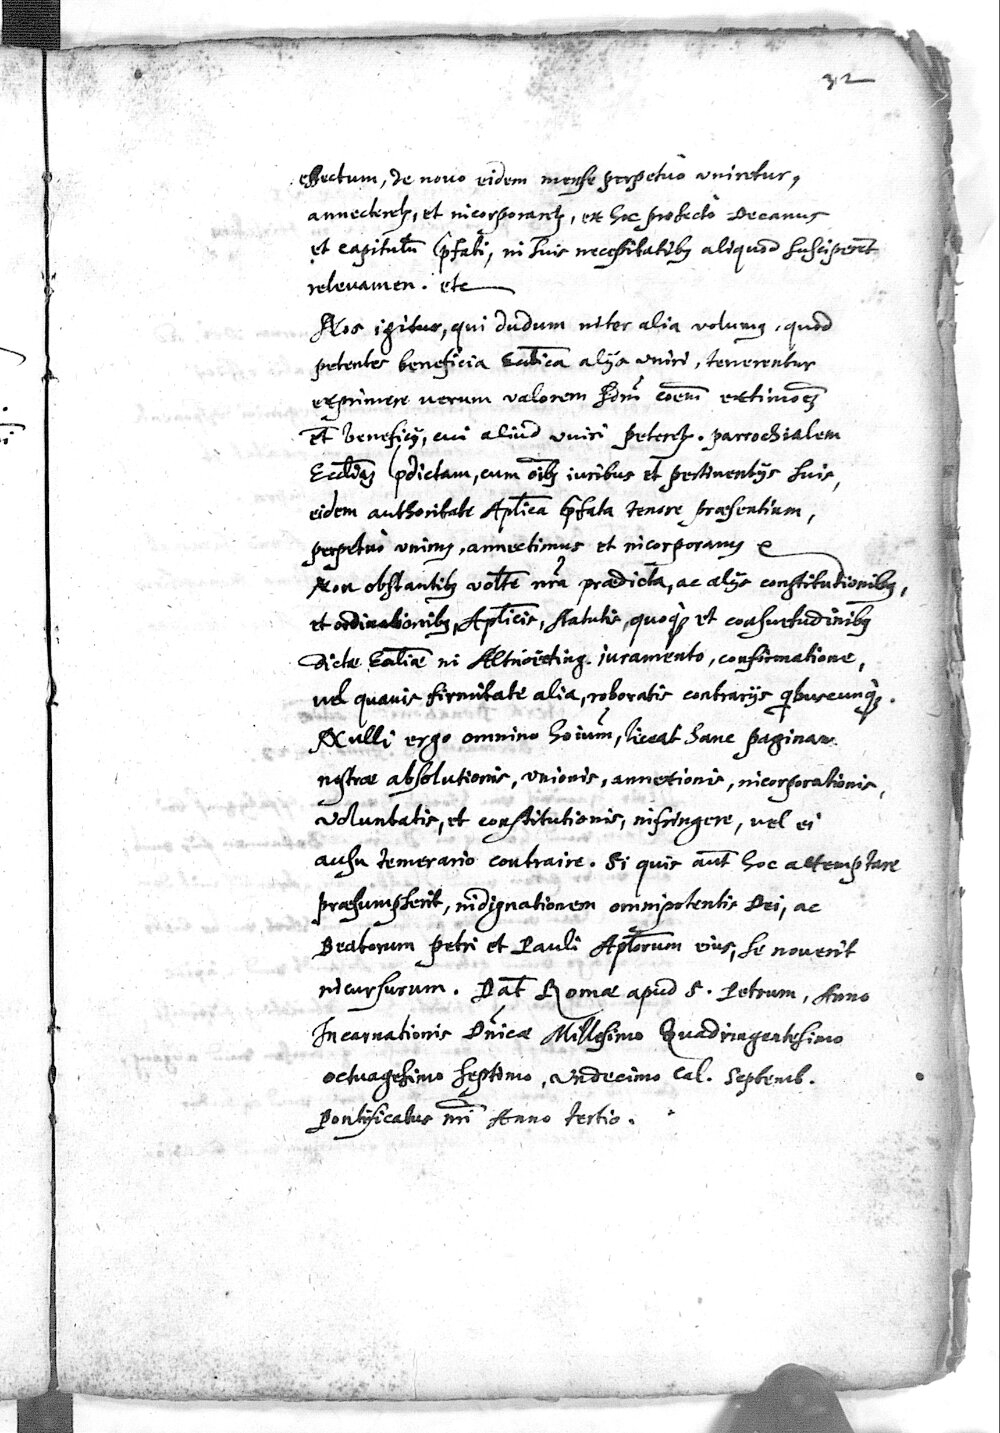 32
effectum, de nouo eidem mensæ perpetuò vniretur,
annecteretꝫ, et incorporaretꝫ, ex hoc profectò Decanus
et capitulū p̄fati, in suis necessitatibꝫ aliquod susciperēt
releuamen. etc
Nos igitur, qui dudum inter alia volumꝫ, quod
petentes beneficia Ecclīca alijs vniri, tenerentur
exprimere uerum valorem sdm̄ cōem̄ extimōeꝫ
et̄ beneficij, cui aliud vniri peteretꝫ. parrochialem
Eccliā p̄dictam, cum oībꝫ iuribus et pertinentijs suis,
eidem authoritate Aplīca p̄fata tenore præsentium,
perpetuò vnimꝫ, annectimus et incorporamꝫ
Non obstantibꝫ volt̄e nr̄a prædicta, ac alijs constitutionibꝫ,
et ordinationibꝫ, Aplīcis, statutis, quoqꝫ et consuetudinibꝫ
dictæ Eccliæ in Altnoeting. iuramento, confirmatione,
uel quauis firmitate alia, roboratis contrarijs qbuscunqꝫ.
Nulli ergo omnino hoium̄, liceat hanc paginam
nostræ absolutionis, vnionis, annexionis, incorporationis,
voluntatis, et constitutionis, infringere, uel ei
ausu temerario contraire. Si quis aut̄ hoc attemptare
præsumpserit, indignationem omnipotentis Dei, ac
Beatorum Petri et Pauli Aptorum eius, se nouerit
incursurum. Dat̄ Romæ apud S. Petrum, Anno
Incarnationis Dn̄icæ Millesimo Quadringentesimo
octuagesimo septimo, vndecimo Cal. Septemb.
Pontificatus nr̄i Anno tertio.